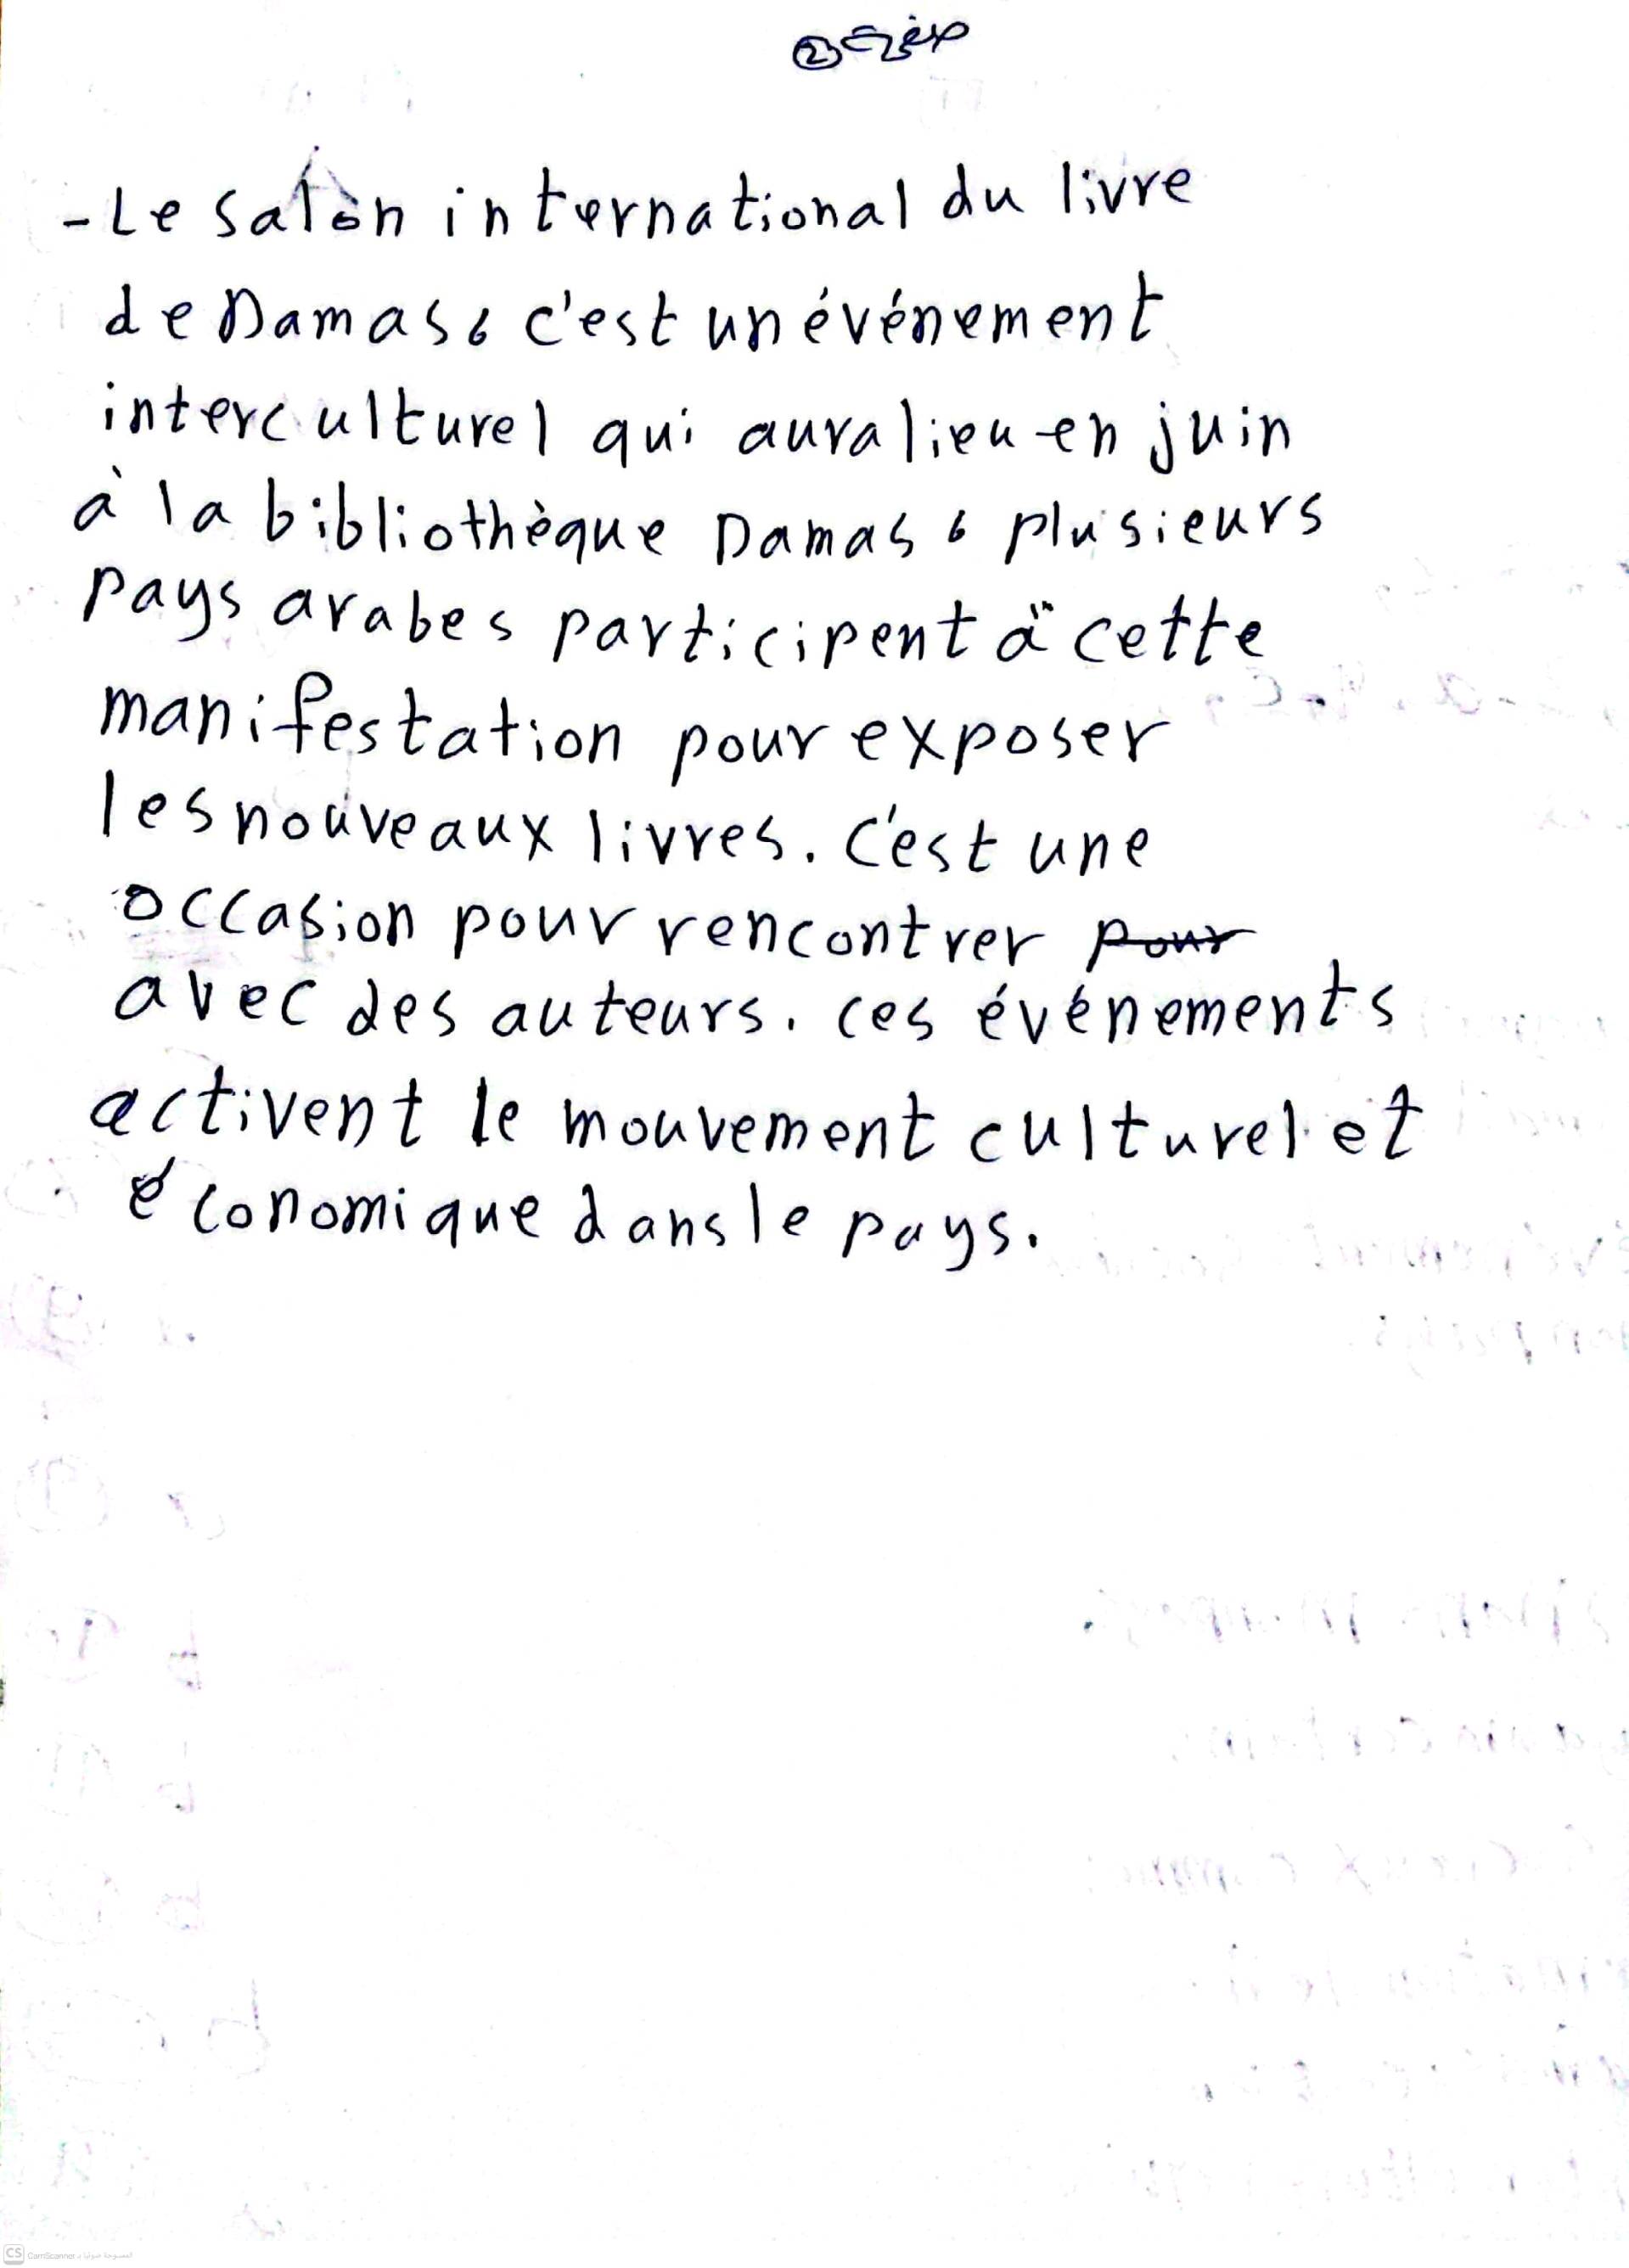 صفحة ②
- Le salon international du livre
de Damas، c'est un événement
interculturel qui aura lieu en juin
à la bibliothèque Damas، plusieurs
pays arabes participent à cette
manifestation pour exposer
les nouveaux livres. c'est une
occasion pour rencontrer ~~pour~~
avec des auteurs. ces événements
activent le mouvement culturel et
économique dans le pays.
CS CamScanner الممسوحة ضوئيا بـ